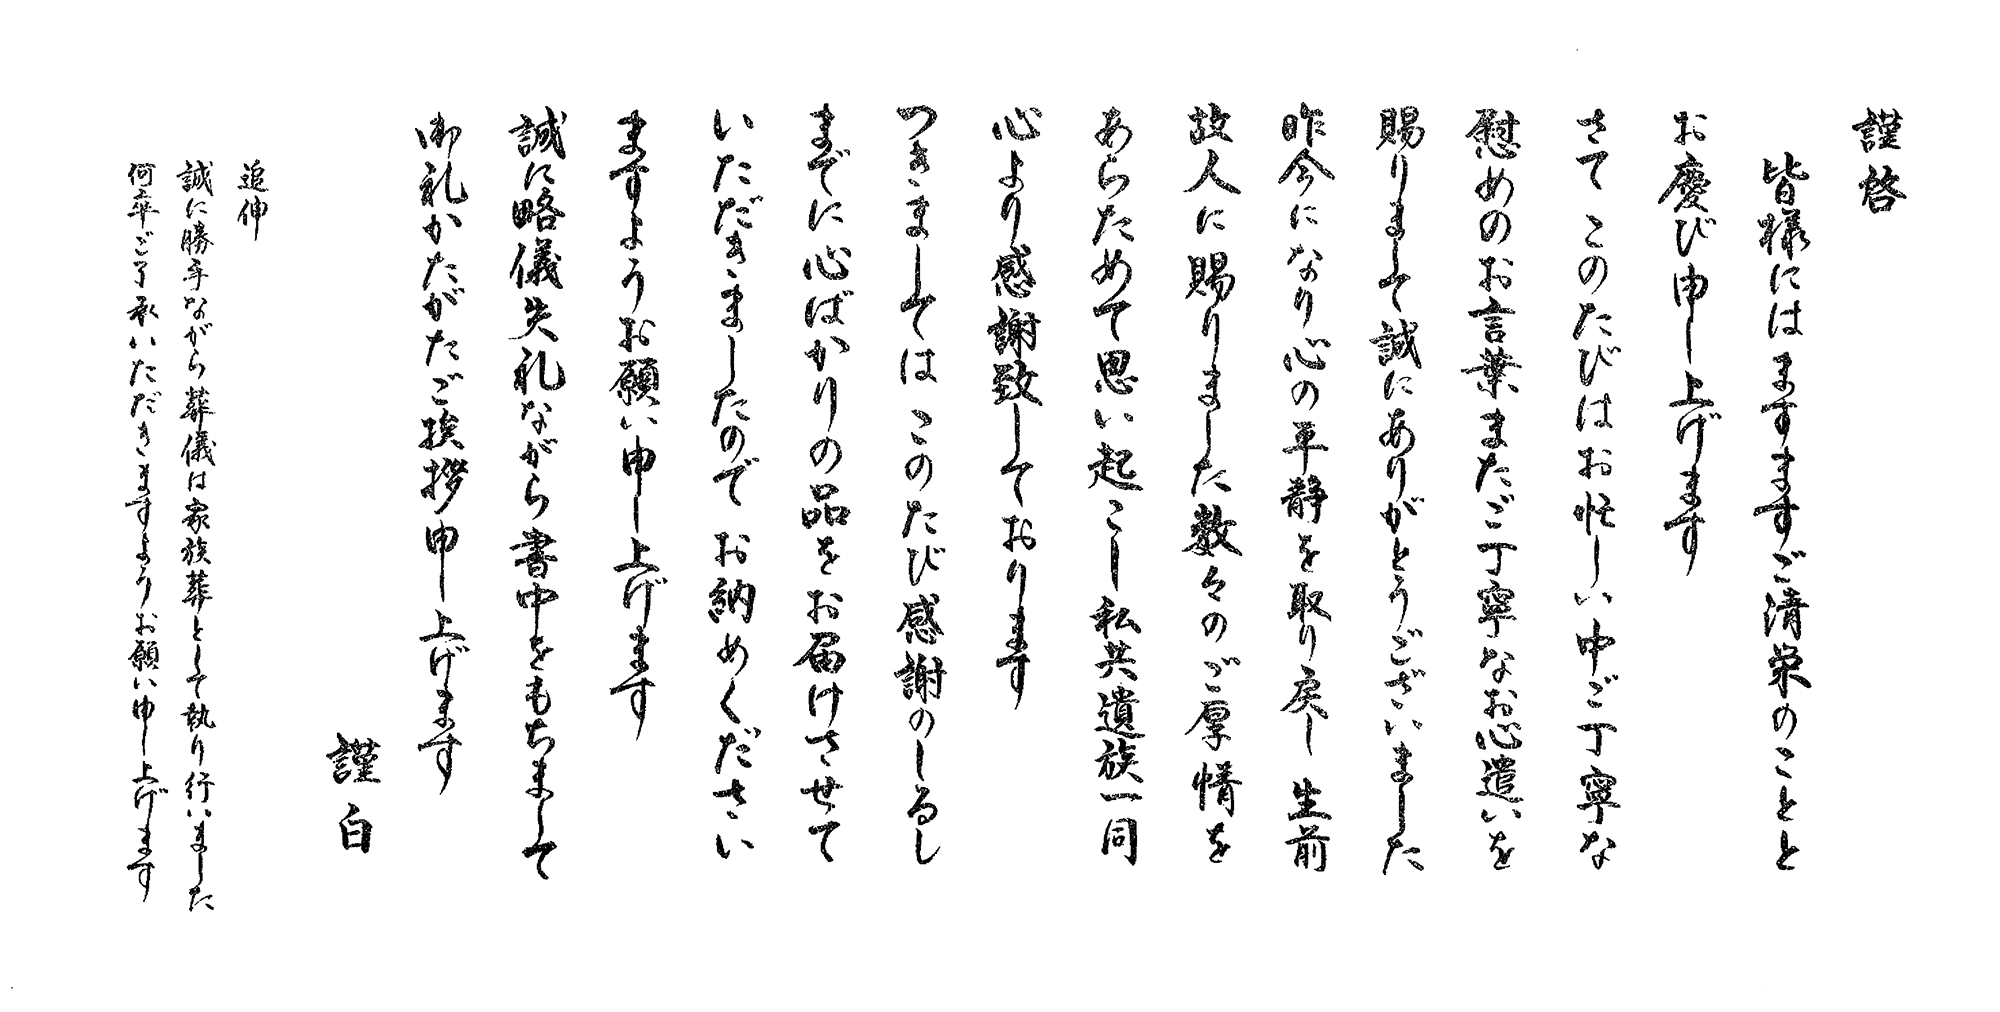 謹啓
皆様にはますますご清栄のことと
お慶び申し上げます
さて このたびはお忙しい中ご丁寧な
慰めのお言葉またご丁寧なお心遣いを
賜りまして誠にありがとうございました
昨今になり心の平静を取り戻し 生前
故人に賜りました数々のご厚情を
あらためて思い起こし私共遺族一同
心より感謝致しております
つきましては このたび感謝のしるし
までに心ばかりの品をお届けさせて
いただきましたので お納めください
ますようお願い申し上げます
誠に略儀失礼ながら書中をもちまして
御礼かたがたご挨拶申し上げます
謹白
追伸
誠に勝手ながら葬儀は家族葬として執り行いました
何卒ご了承いただきますようお願い申し上げます